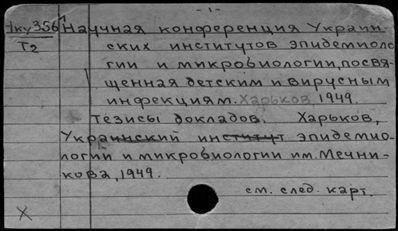 - 1 -
Нку356 Научная конференция Украин-
Т2 ских институтов эпидемиоло
гии и микробиологии, посвя-
щенная детским и вирусным
инфекциям. Харьков 1949.
Тезисы докладов. Харьков,
Украинский институт эпидемио-
логии и микробиологии им. Мечни-
кова, 1949.
см. след. карт.
X